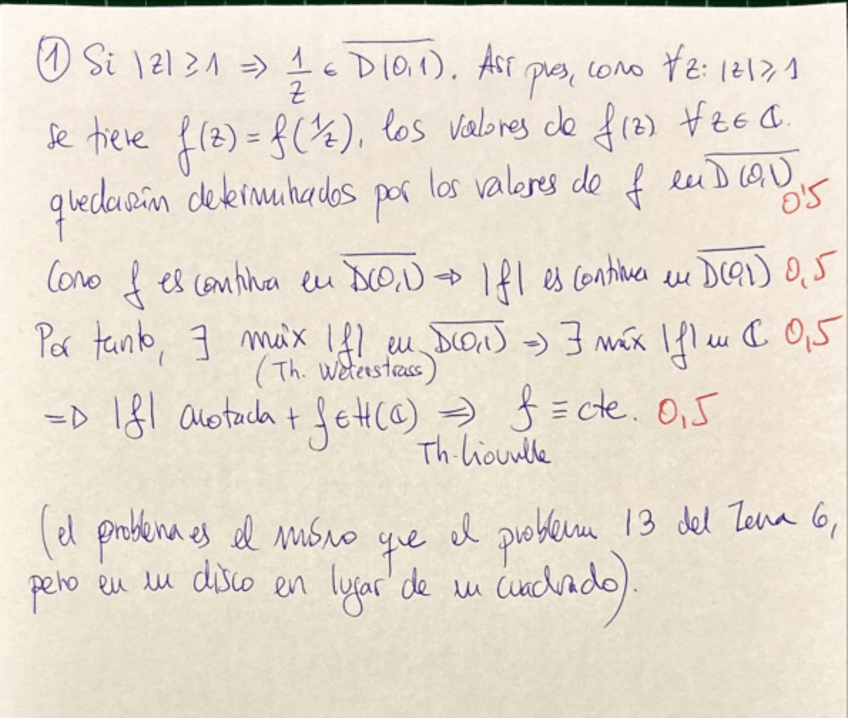 ① Si |z| ≥ 1 ⇒ 1/z ∈ D(0,1)‾. Así pues, como ∀z: |z| ≥ 1
se tiene f(z) = f(1/z), los valores de f(z) ∀z ∈ ℂ.
quedarán determinados por los valores de f en D(0,1)‾ 0'5
Como f es continua en D(0,1)‾ ⇒ |f| es continua en D(0,1)‾ 0,5
Por tanto, ∃ máx |f| en D(0,1)‾ ⇒ ∃ máx |f| en ℂ 0,5
(Th. Weierstrass)
⇒ |f| acotada + f ∈ H(ℂ) ⇒ f ≡ cte. 0,5
Th. Liouville
(el problema es el mismo que el problema 13 del Tema 6,
pero en un disco en lugar de un cuadrado).